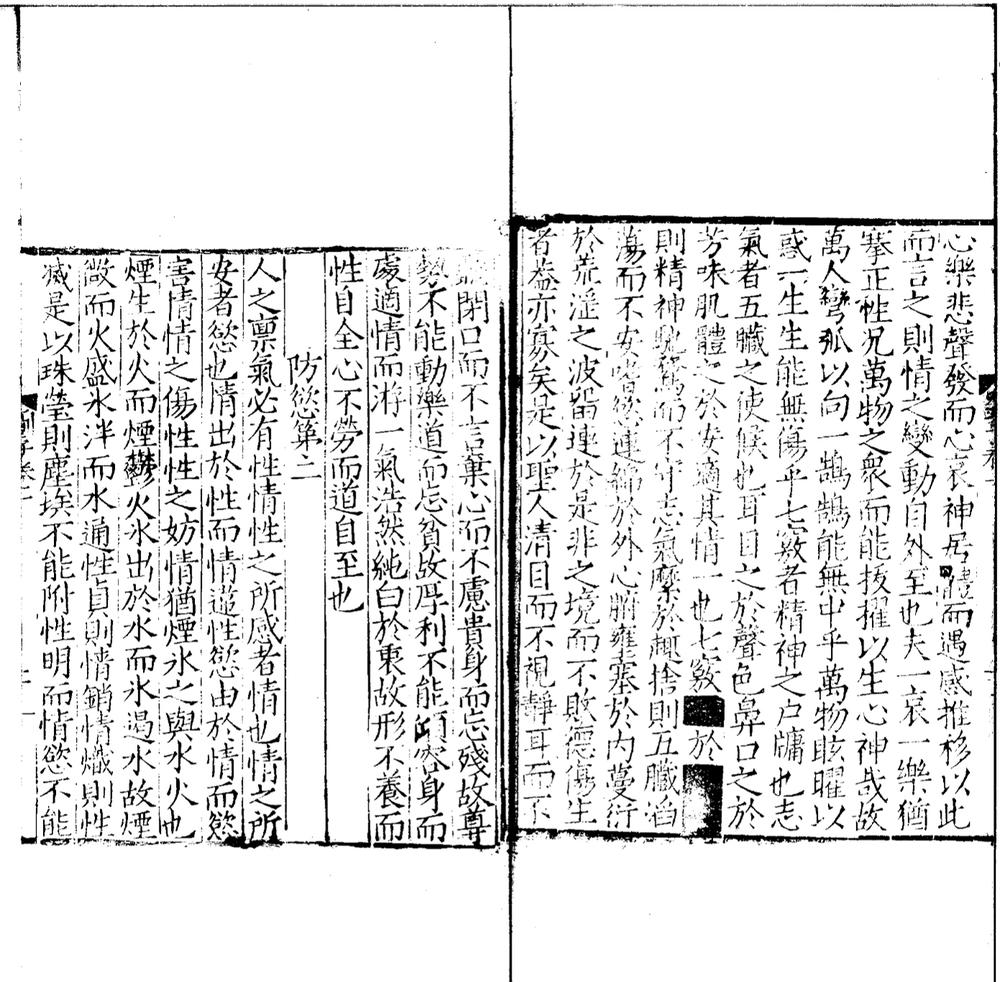 心樂悲聲發而心哀神居體而遇感推移以此
而言之則情之變動自外至也夫一哀一樂猶
搴正性况萬物之衆而能拔擢以生心神哉故
萬人彎弧以向一鵠鵠能無中乎萬物眩曜以
惑一生生能無傷乎七竅者精神之户牖也志
氣者五臟之使候也耳目之於聲色鼻口之於
芳味肌體之於安適其情一也七竅於
則精神馳騖而不守志氣縻於趣捨則五臟滔
蕩而不安嗜慾連綿於外心腑壅塞於内蔓衍
於荒淫之波留連於是非之境而不敗德傷生
者蓋亦寡矣是以聖人清目而不視靜耳而不
聽閉口而不言棄心而不慮貴身而忘殘故尊
勢不能動樂道而忘貧故厚利不能傾容身而
處適情而游一氣浩然純白於衷故形不養而
性自全心不勞而道自至也
防慾第二
人之禀氣必有性情性之所感者情也情之所
安者慾也情出於性而情違性慾由於情而慾
害情情之傷性性之妨情猶煙氷之與水火也
煙生於火而煙鬱火氷出於水而氷遏水故煙
微而火盛氷泮而水通性貞則情銷情熾則性
滅是以珠瑩則塵埃不能附性明而情慾不能